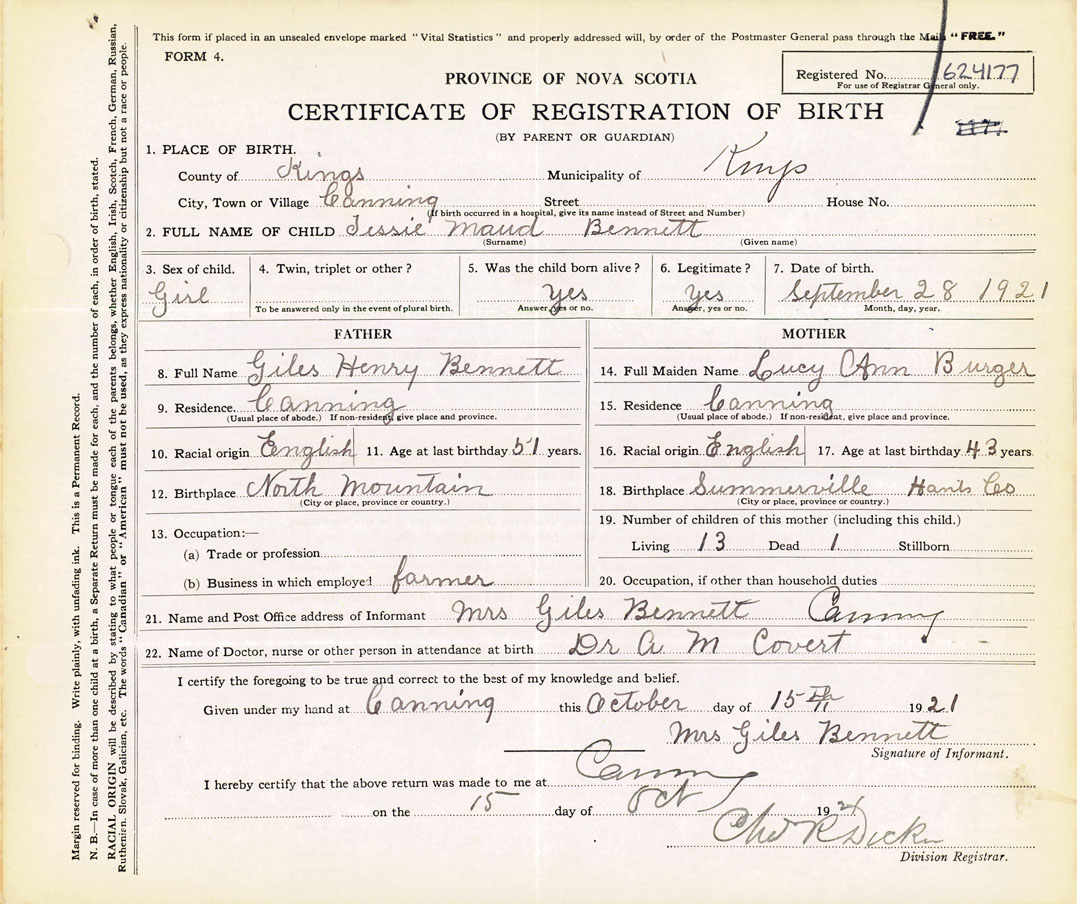 This form if placed in an unsealed envelope marked "Vital Statistics" and properly addressed will, by order of the Postmaster General pass through the Mails "FREE."
FORM 4.
Registered No. 624177
For use of Registrar General only.
PROVINCE OF NOVA SCOTIA
CERTIFICATE OF REGISTRATION OF BIRTH
(BY PARENT OR GUARDIAN)
1. PLACE OF BIRTH.
County of Kings Municipality of Kings
City, Town or Village Canning Street House No.
(If birth occurred in a hospital, give its name instead of Street and Number)
2. FULL NAME OF CHILD Jessie Maud Bennett
(Surname) (Given name)
3. Sex of child. 4. Twin, triplet or other? 5. Was the child born alive? 6. Legitimate? 7. Date of birth.
Girl yes yes September 28 1921
To be answered only in the event of plural birth. Answer, yes or no. Answer, yes or no. Month, day, year.
FATHER MOTHER
8. Full Name Giles Henry Bennett 14. Full Maiden Name Lucy Ann Burger
9. Residence. Canning 15. Residence Canning
(Usual place of abode.) If non-resident, give place and province. (Usual place of abode.) If non-resident, give place and province.
10. Racial origin English 11. Age at last birthday 51 years. 16. Racial origin English 17. Age at last birthday 43 years
12. Birthplace North Mountain 18. Birthplace Summerville Hants Co
(City or place, province or country.) (City or place, province or country.)
13. Occupation:— 19. Number of children of this mother (including this child.)
(a) Trade or profession Living 13 Dead 1 Stillborn
(b) Business in which employed farmer 20. Occupation, if other than household duties
21. Name and Post Office address of Informant Mrs Giles Bennett Canning
22. Name of Doctor, nurse or other person in attendance at birth Dr A M Covert
I certify the foregoing to be true and correct to the best of my knowledge and belief.
Given under my hand at Canning this October day of 15th 1921
Mrs Giles Bennett
Signature of Informant.
I hereby certify that the above return was made to me at Canning
on the 15 day of Oct 1921
R Dickie
Division Registrar.
Margin reserved for binding. Write plainly, with unfading ink. This is a Permanent Record.
N. B.—In case of more than one child at a birth, a Separate Return must be made for each, and the number of each, in order of birth, stated.
RACIAL ORIGIN will be described by stating to what people or tongue each of the parents belongs, whether English, Irish, Scotch, French, German, Russian,
Ruthenian, Slovak, Galician, etc. The words "Canadian" or "American" must not be used, as they express nationality or citizenship but not a race or people.